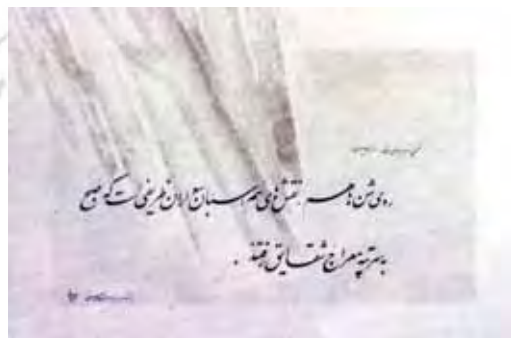 روی شن‌ها هم نقش‌های سم اسبان سواران ظریفی است که صبح
به سر تپه معراج شقایق رفتند .